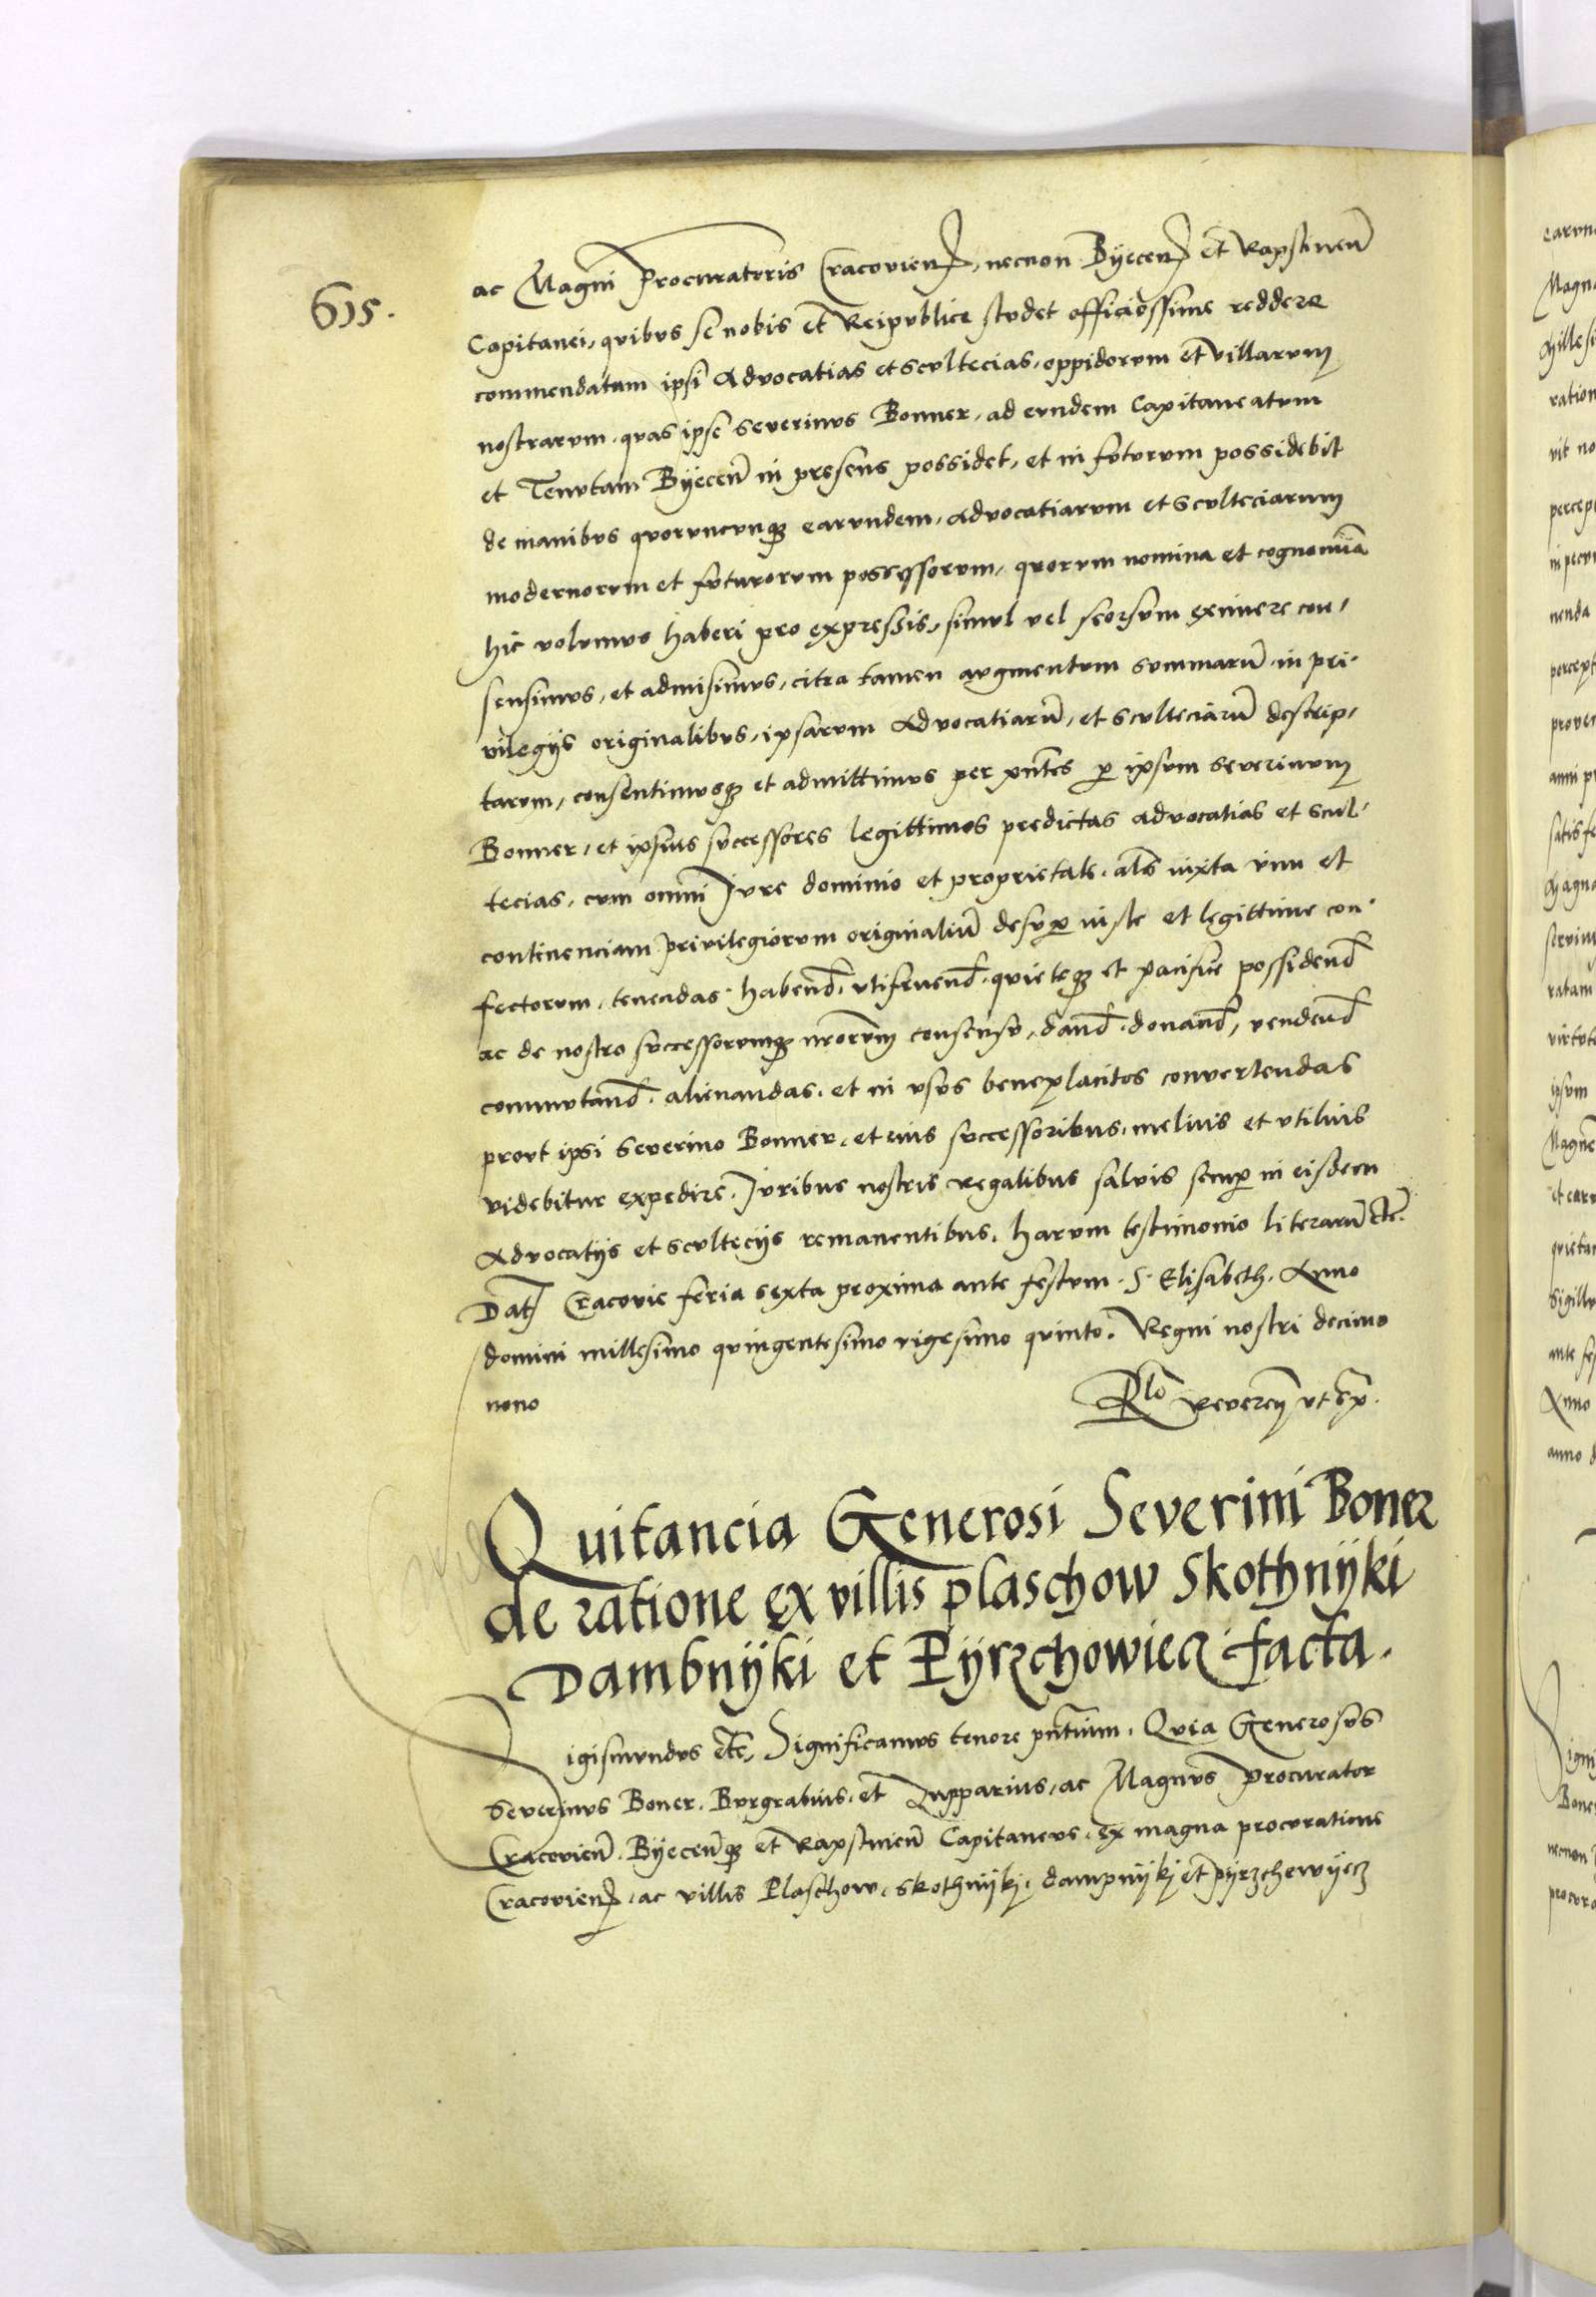 615.
ac Magni Procuratoris Cracovien, necnon Byecen et Rapstinen
Capitanei, quibus se nobis et Reipublice studet officiossime reddere
commendatum ipsi Advocatias et scultecias, oppidorum et villarum
nostrarum, quas ipse Severinus Bonner, ad eundem Capitaneatum
et Tenutam Byecen̄ in presens possidet, et in futurum possidebit
de manibus quoruncunq₃ earundem, advocatiarum et sculteciarum
modernorum et futurorum possessorum, quorum nomina et cognomīa
hic volumus haberi pro expressis, simul vel seorsum eximere con,
sensimus, et admisimus, citra tamen augmentum summarū in pri,
vilegijs originalibus, ipsarum Advocatiarū, et scultecīarū descrip,
tarum, consentimusq₃ et admittimus per pn̄tes p ipsum Severinum
Bonner, et ipsius successores legittimos predictas advocatias et scul,
tecias, cum omni Jure dominio et proprietate, al̄s iuxta vim et
continenciam privilegiorum originaliū desup iuste et legittime con,
fectorum, tenendas, habend̄, utifruend̄, quieteq₃ et pacifice possidend̄
ac de nostro successorumq₃ nr̄orum consensu, dand̄, donand̄, vendend̄
commutand̄, alienandas, et in usus beneplacitos convertendas
prout ipsi Severino Bonner, et eius successoribus, melius et utilius
videbitur expedire, Juribus nostris regalibus salvis semp in eisdem
Advocatijs et scultecijs remanentibus, harum testimonio literarū etc̄.
Dat Cracovie feria sexta proxima ante festum . S . Elisabeth, Anno
domini millesimo quingentesimo vigesimo quinto, Regni nostri decimo
nono
Rl̄o Reveren ut sup.
Quitancia Generosi Severini Boner
de ratione ex villis plaschow Skothnÿki
Dambnÿki et Pÿrzchowiecz facta.
Sigismundus etc̄, Significamus tenore pn̄tium, Quia Generosus
Severinus Boner, Burgrabius, et Zupparius, ac Magnus Procurator
Cracovien̄, Byecen̄q₃ et Rapstinen̄ Capitaneus, ex magna procuratione
Cracovien, ac villis Plaschow, skothnÿkj, dampnÿkj et pÿrzchewÿecz